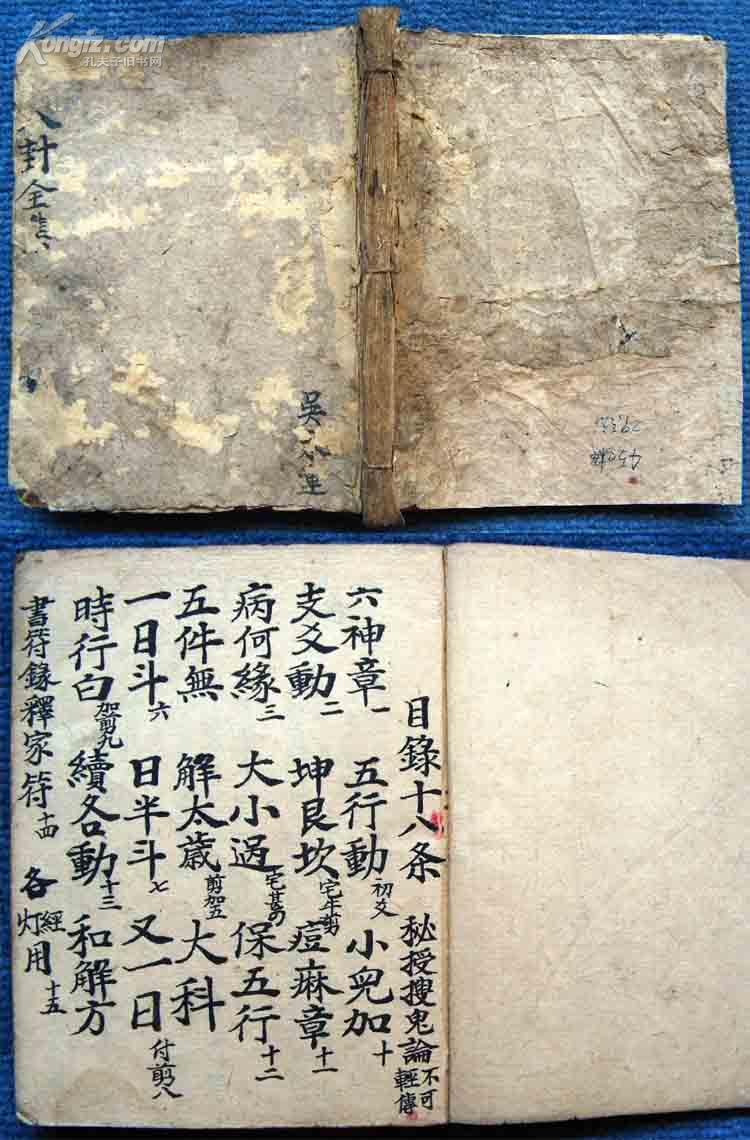 Kongfz.com
孔夫子旧书网
八封全集
吳
目錄十八条 秘授搜鬼論 不可輕傳
六神章一 五行動初爻 小兒加十
支爻動二 坤艮坎宅年剪 痘麻章十一
病何緣三 大小過 保五行十二
五件無 解太歲剪加五 大科
一日斗六 日半斗七 又一日付剪八
時行白加剪九 續各動十三 和解方
書符錄釋家符十四 各灯經用十五